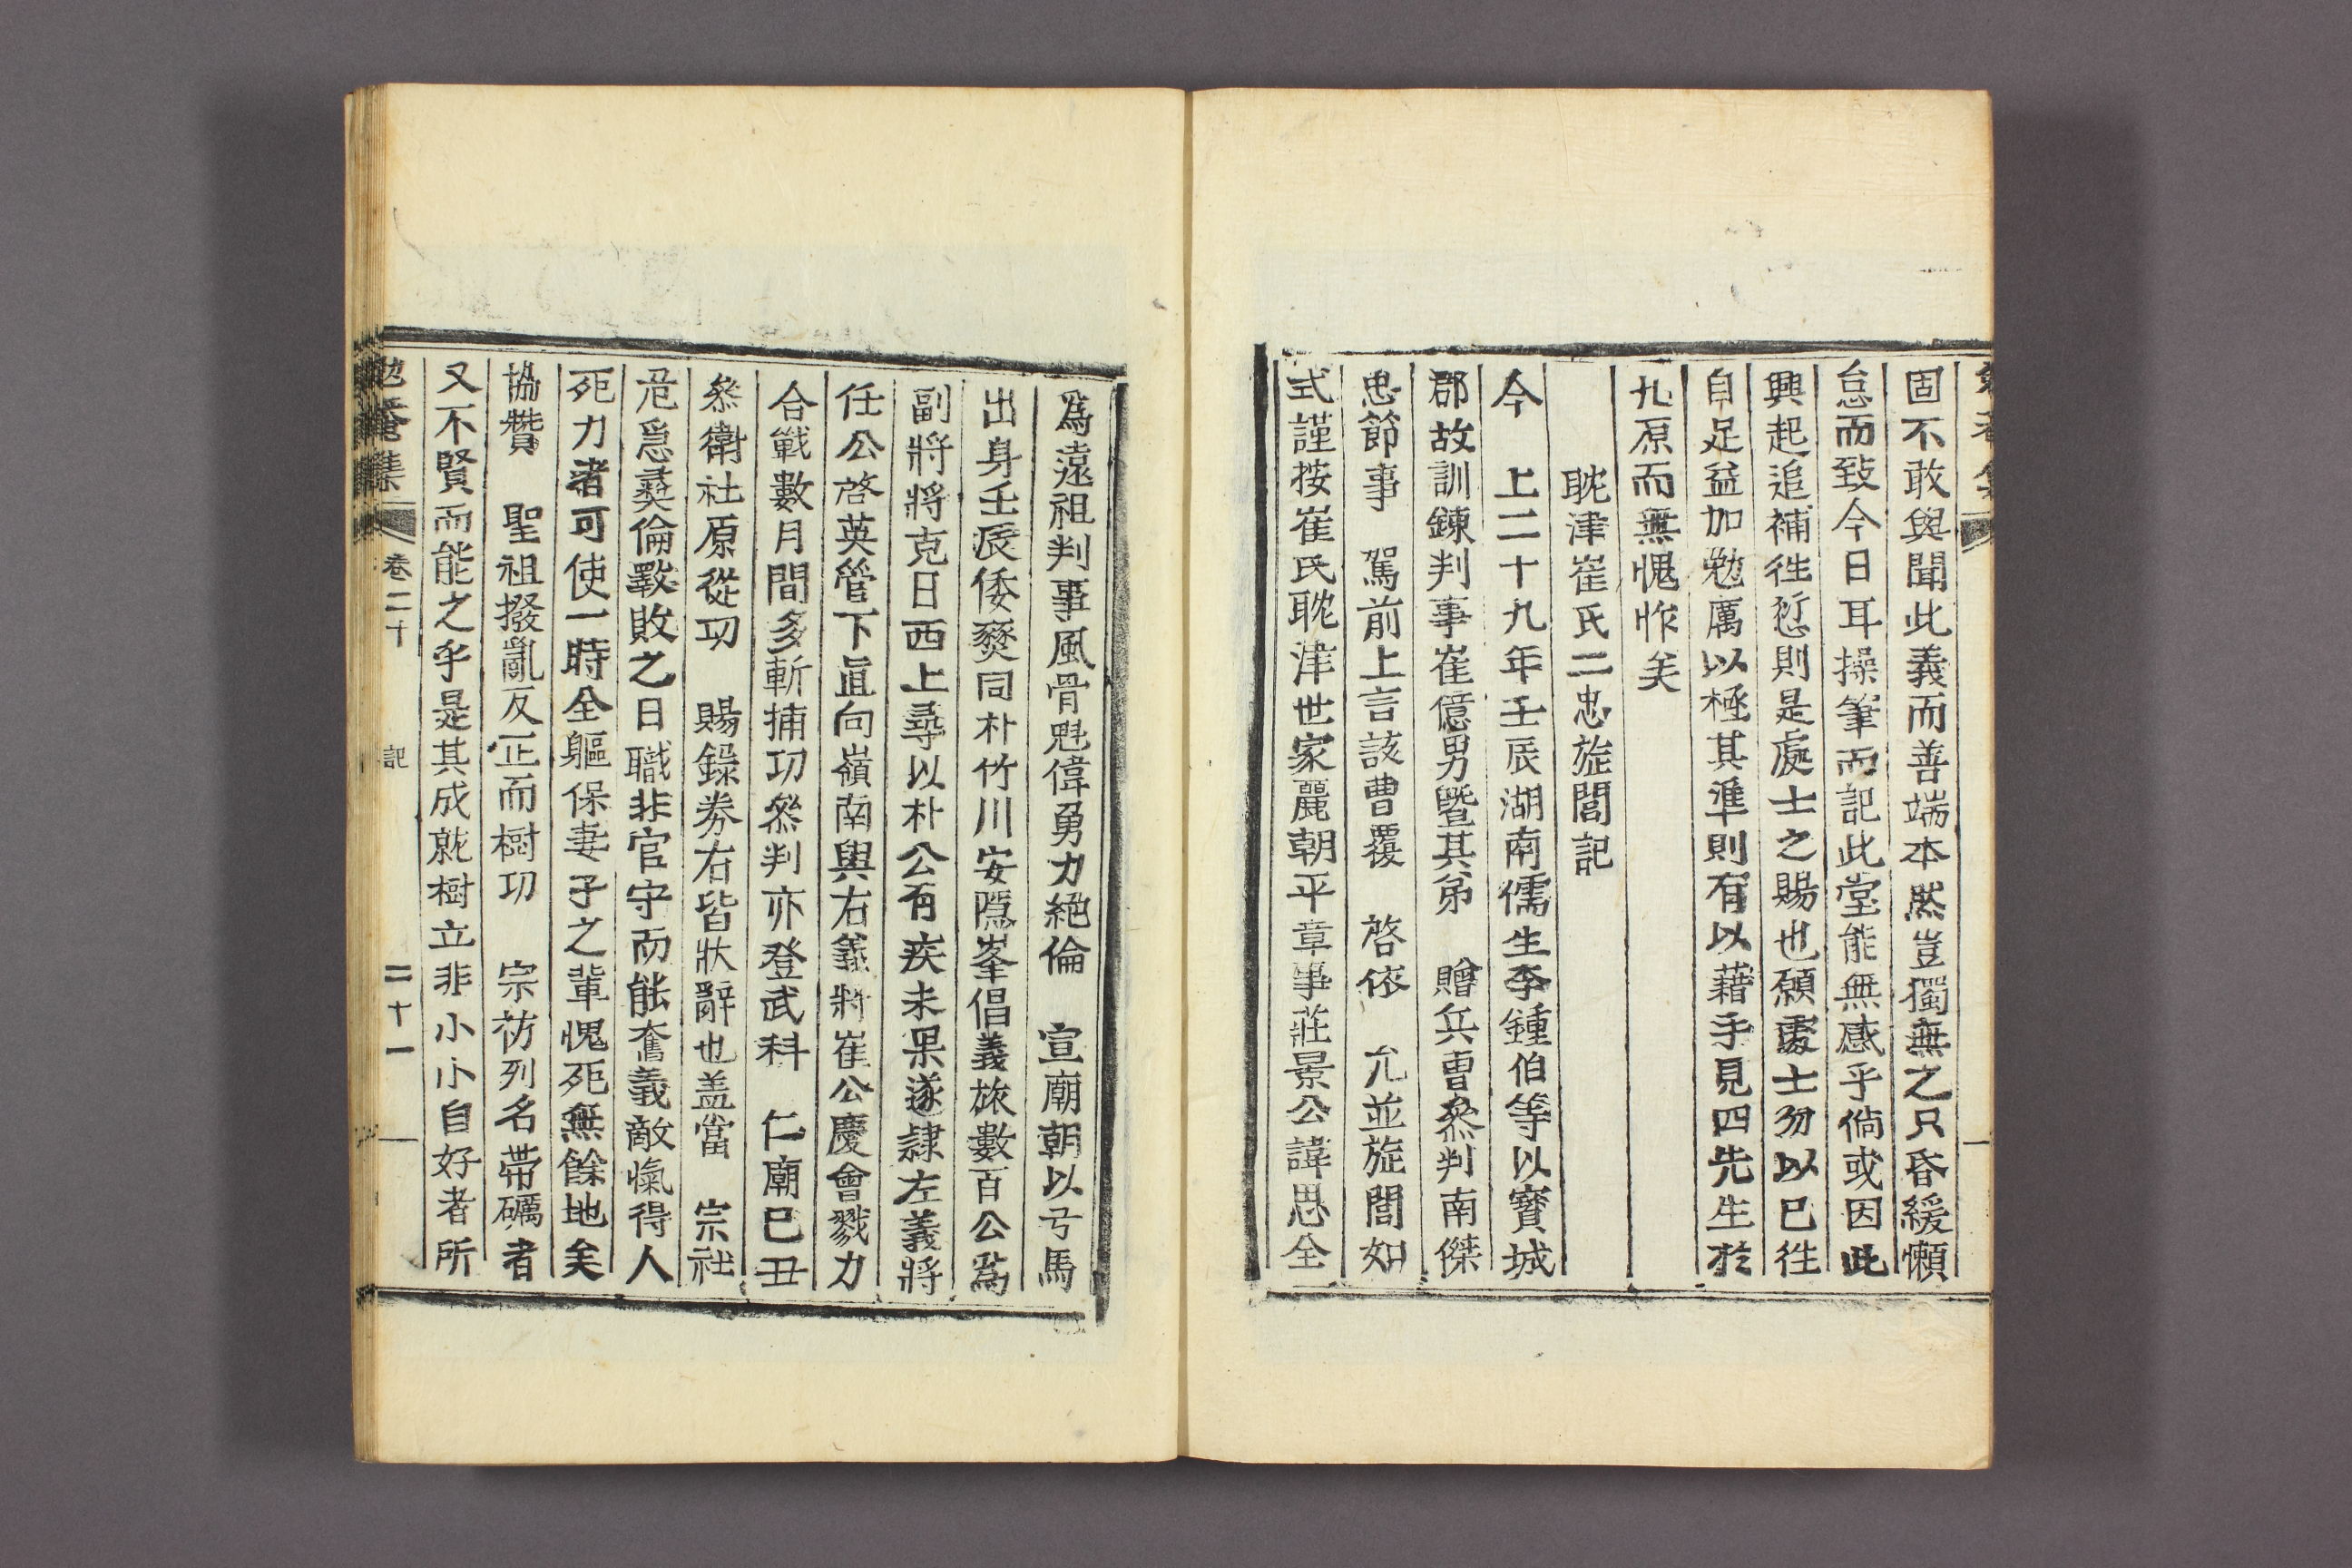 固不敢與聞此義而善端本然豈獨無之只昏緩懶
怠而致今日耳操筆而記此堂能無感乎倘或因此
興起追補徃愆則是處士之賜也願處士勿以已徃
自足益加勉厲以極其準則有以藉手見四先生於
九原而無愧怍矣
耽津崔氏二忠旌閭記
今　上二十九年壬辰湖南儒生李鍾伯等以寶城
郡故訓鍊判事崔億男曁其弟　贈兵曹叅判南傑
忠節事　駕前上言該曹覆　啓依　允並旌閭如
式謹按崔氏耽津世家麗朝平章事莊景公諱思全
爲遠祖判事風骨魁偉勇力絶倫　宣廟朝以弓馬
出身壬辰倭燹同朴竹川安隱峯倡義旅數百公爲
副將將克日西上尋以朴公有疾未果遂隷左義將
任公啓英管下直向嶺南與右義將崔公慶會戮力
合戰數月間多斬捕功叅判亦登武科　仁廟己丑
叅衛社原從功　賜錄券右皆狀辭也盖當　宗社
危急彛倫斁敗之日職非官守而能奮義敵愾得人
死力者可使一時全軀保妻子之輩愧死無餘地矣
協贊　聖祖撥亂反正而樹功　宗祊列名帶礪者
又不賢而能之乎是其成就樹立非小小自好者所
勉菴集　卷二十　記　二十一